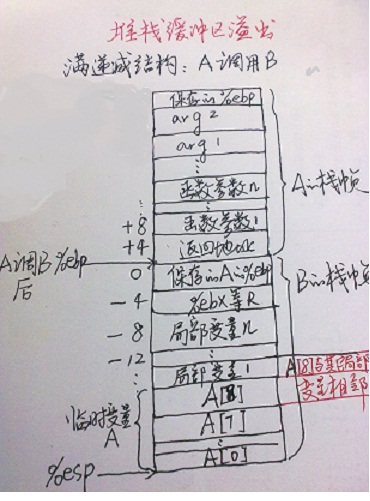 堆栈缓冲区溢出
满递减结构：A调用B
保存的%ebp
arg 2
arg 1
⋮
函数参数n
⋮
+8 函数参数1
+4 返回地址
A调B %ebp
后
0 保存的A的%ebp
-4 %ebx等R
-8 局部变量n
-12 ⋮
局部变量1
A[8]
A[7]
⋮
A[0]
临时变量
A
%esp
A的栈帧
B的栈帧
A[8]与其局部
变量相邻